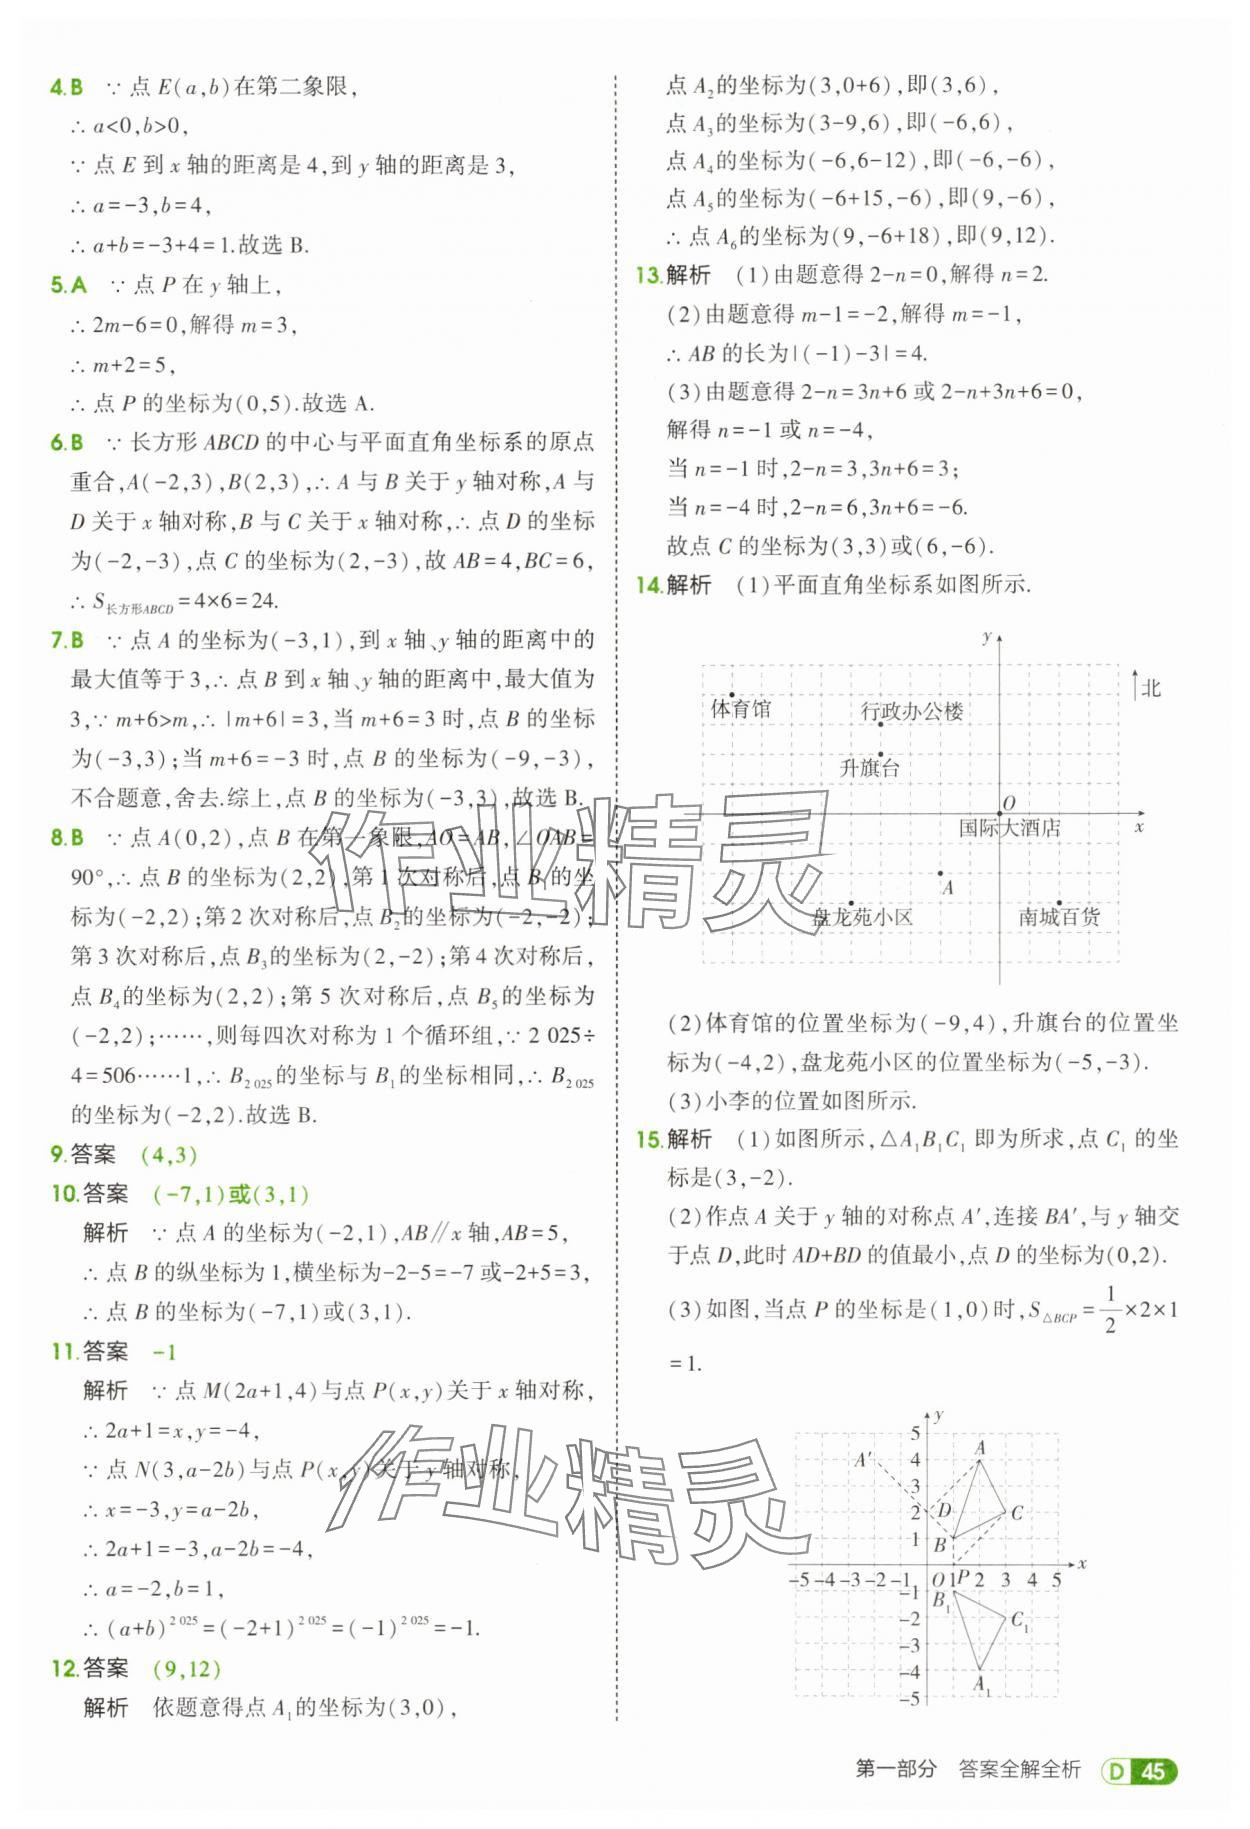 4.B ∵点E(a,b)在第二象限,
∴a<0,b>0,
∵点E到x轴的距离是4,到y轴的距离是3,
∴a=-3,b=4,
∴a+b=-3+4=1.故选B.
5.A ∵点P在y轴上,
∴2m-6=0,解得m=3,
∴m+2=5,
∴点P的坐标为(0,5).故选A.
6.B ∵长方形ABCD的中心与平面直角坐标系的原点
重合,A(-2,3),B(2,3),∴A与B关于y轴对称,A与
D关于x轴对称,B与C关于x轴对称,∴点D的坐标
为(-2,-3),点C的坐标为(2,-3),故AB=4,BC=6,
∴S长方形ABCD=4×6=24.
7.B ∵点A的坐标为(-3,1),到x轴、y轴的距离中的
最大值等于3,∴点B到x轴、y轴的距离中,最大值为
3,∵m+6>m,∴|m+6|=3,当m+6=3时,点B的坐标
为(-3,3);当m+6=-3时,点B的坐标为(-9,-3),
不合题意,舍去.综上,点B的坐标为(-3,3),故选B.
8.B ∵点A(0,2),点B在第一象限,AO=AB,∠OAB=
90°,∴点B的坐标为(2,2),第1次对称后,点B₁的坐
标为(-2,2);第2次对称后,点B₂的坐标为(-2,-2);
第3次对称后,点B₃的坐标为(2,-2);第4次对称后,
点B₄的坐标为(2,2);第5次对称后,点B₅的坐标为
(-2,2);……,则每四次对称为1个循环组,∵2 025÷
4=506……1,∴B₂ ₀₂₅的坐标与B₁的坐标相同,∴B₂ ₀₂₅
的坐标为(-2,2).故选B.
9.答案 (4,3)
10.答案 (-7,1)或(3,1)
解析 ∵点A的坐标为(-2,1),AB∥x轴,AB=5,
∴点B的纵坐标为1,横坐标为-2-5=-7或-2+5=3,
∴点B的坐标为(-7,1)或(3,1).
11.答案 -1
解析 ∵点M(2a+1,4)与点P(x,y)关于x轴对称,
∴2a+1=x,y=-4,
∵点N(3,a-2b)与点P(x,y)关于y轴对称,
∴x=-3,y=a-2b,
∴2a+1=-3,a-2b=-4,
∴a=-2,b=1,
∴(a+b)²⁰²⁵=(-2+1)²⁰²⁵=(-1)²⁰²⁵=-1.
12.答案 (9,12)
解析 依题意得点A₁的坐标为(3,0),
点A₂的坐标为(3,0+6),即(3,6),
点A₃的坐标为(3-9,6),即(-6,6),
点A₄的坐标为(-6,6-12),即(-6,-6),
点A₅的坐标为(-6+15,-6),即(9,-6),
∴点A₆的坐标为(9,-6+18),即(9,12).
13.解析 (1)由题意得2-n=0,解得n=2.
(2)由题意得m-1=-2,解得m=-1,
∴AB的长为|(-1)-3|=4.
(3)由题意得2-n=3n+6或2-n+3n+6=0,
解得n=-1或n=-4,
当n=-1时,2-n=3,3n+6=3;
当n=-4时,2-n=6,3n+6=-6.
故点C的坐标为(3,3)或(6,-6).
14.解析 (1)平面直角坐标系如图所示.
y
北
体育馆
行政办公楼
升旗台
O
国际大酒店 x
A
盘龙苑小区 南城百货
(2)体育馆的位置坐标为(-9,4),升旗台的位置坐
标为(-4,2),盘龙苑小区的位置坐标为(-5,-3).
(3)小李的位置如图所示.
15.解析 (1)如图所示,△A₁B₁C₁即为所求,点C₁的坐
标是(3,-2).
(2)作点A关于y轴的对称点A′,连接BA′,与y轴交
于点D,此时AD+BD的值最小,点D的坐标为(0,2).
(3)如图,当点P的坐标是(1,0)时,S△BCP=1/2×2×1
=1.
y
5
A′ 4 A
3
2 D C
1 B
-5 -4 -3 -2 -1 O 1 P 2 3 4 5 x
-1 B₁
-2 C₁
-3
-4
-5 A₁
作业精灵
作业精灵
第一部分 答案全解全析 D 45